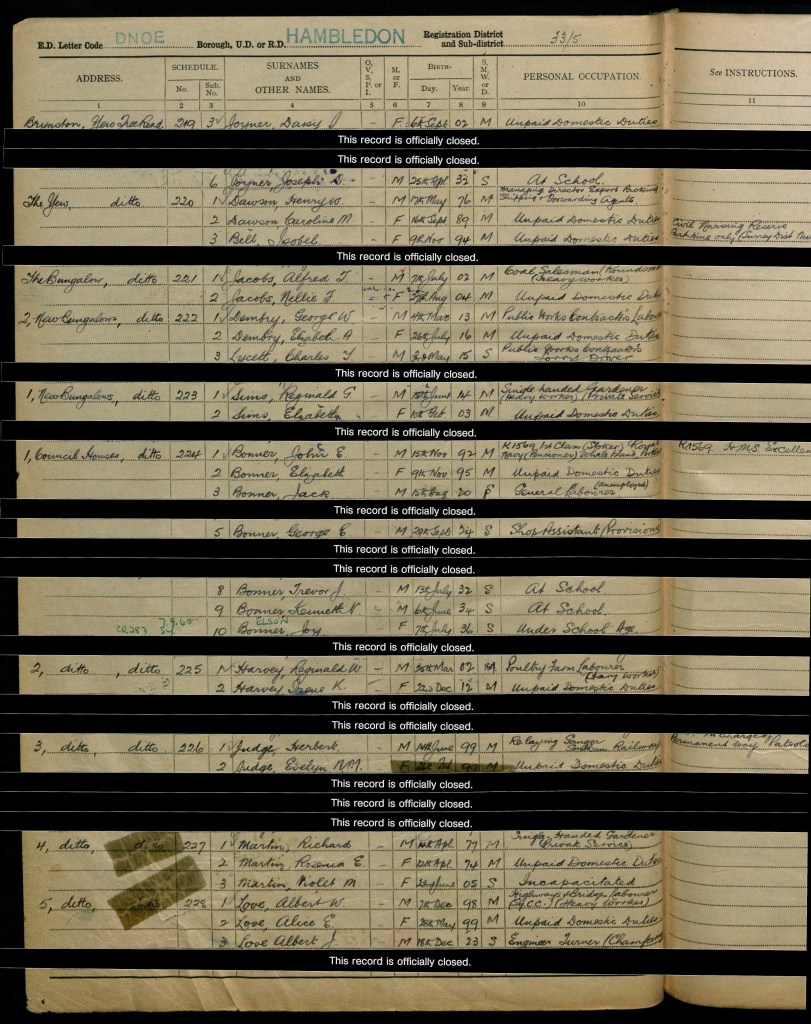 E.D. Letter Code DNOE Borough, U.D. or R.D. HAMBLEDON Registration District and Sub-district 33/5
ADDRESS. SCHEDULE. No. Sub. No. SURNAMES AND OTHER NAMES. O, V, S, P. or I. M. or F. BIRTH— Day. Year. S, M, W, or D. PERSONAL OCCUPATION. See INSTRUCTIONS.
1 2 3 4 5 6 7 8 9 10 11
New Inn Road, 219 3 Joyner, Daisy J - F 6th Sept 02 M Unpaid Domestic Duties
This record is officially closed.
This record is officially closed.
6 Joyner, Joseph D. - M 25th Apl. 32 S At School.
The Yew, ditto 220 1 Dawson, Henry W. - M 17th May 76 M Managing Director Export Packing Shipping & Forwarding Agents
2 Dawson, Caroline M. - F 16th Sept 89 M Unpaid Domestic Duties
3 Bell, Isobel - F 9th Nov 94 M Unpaid Domestic Duties Civil Nursing Reserve Part time only (Surrey Dist
This record is officially closed.
The Bungalow, ditto 221 1 Jacobs, Alfred T. - M 7th July 02 M Coal Salesman (Roundsman (Heavy worker)
2 Jacobs, Nellie F. F Aug 04 M Unpaid Domestic
2, New Bungalows, ditto 222 1 Dembry, George W - M 4th Mar 13 M Public Works Contractors
2 Dembry, Elizabeth A - F 26th July 16 M Unpaid Domestic Duties
3 Lycett, Charles T. M May 15 S Public Works Contractors Lorry Driver
This record is officially closed.
1, New Bungalows, ditto 223 1 Sims, Reginald G. - M 15th June 14 M Single handed Gardener (Heavy Worker) (Private Service)
2 Sims, Elizabeth - F Feb 03 M Unpaid Domestic Duties
This record is officially closed.
1, Council Houses, ditto 224 1 Bonner, John E - M 15th Nov 92 M K1569 1st Class (Stoker) Royal Navy (Pensioner) Whale Island, K1569 H.M.S. Excellen
2 Bonner, Elizabeth - F 9th Nov 95 M Unpaid Domestic Duties
3 Bonner, Jack - M 15th Aug 20 S General Labourer (Unemployed)
This record is officially closed.
5 Bonner, George C. - M 29th Sept 24 S Shop Assistant (Provisions
This record is officially closed.
This record is officially closed.
8 Bonner, Trevor J. - M 13th July 32 S At School.
9 Bonner, Kenneth V. - M 6th June 34 S At School.
CR283 7.9.60 ELSON
10 Bonner, Joy. - F 7th July 36 S Under School Age.
This record is officially closed.
2, ditto, ditto 225 1 Harvey, Reginald W - M 25th Mar 02 M Poultry Farm Labourer (Heavy Worker)
2 Harvey, Irene K. - F 22nd Dec 12 M Unpaid Domestic Duties
This record is officially closed.
This record is officially closed.
3, ditto, ditto 226 1 Judge, Herbert. M 14th June 99 M Relaying Ganger Southern Railway Permanent Way Patrols
2 Judge, Evelyn F 99 M Unpaid Domestic Duties
This record is officially closed.
This record is officially closed.
This record is officially closed.
4, ditto, ditto 227 1 Martin, Richard - M Apl 77 M Single-Handed Gardener (Private Service)
2 Martin, Rosena E. - F 12th Apl. 74 M Unpaid Domestic Duties
3 Martin, Violet M. - F 23rd June 05 S Incapacitated
5, ditto, 228 1 Love, Albert W. - M 7th Dec 98 M Highways & Bridge Labourer (S.C.C.) (Heavy Worker)
2 Love, Alice E. - F 28th May 99 M Unpaid Domestic Duties
3 Love Albert J. M 18th Dec 23 S Engineer Turner
This record is officially closed.